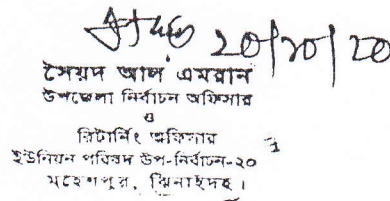 ২০/১০/২০
সৈয়দ আল এমরান
উপজেলা নির্বাচন অফিসার
ও
রিটার্নিং অফিসার
ইউনিয়ন পরিষদ উপ-নির্বাচন-২০
মহেশপুর, ঝিনাইদহ।